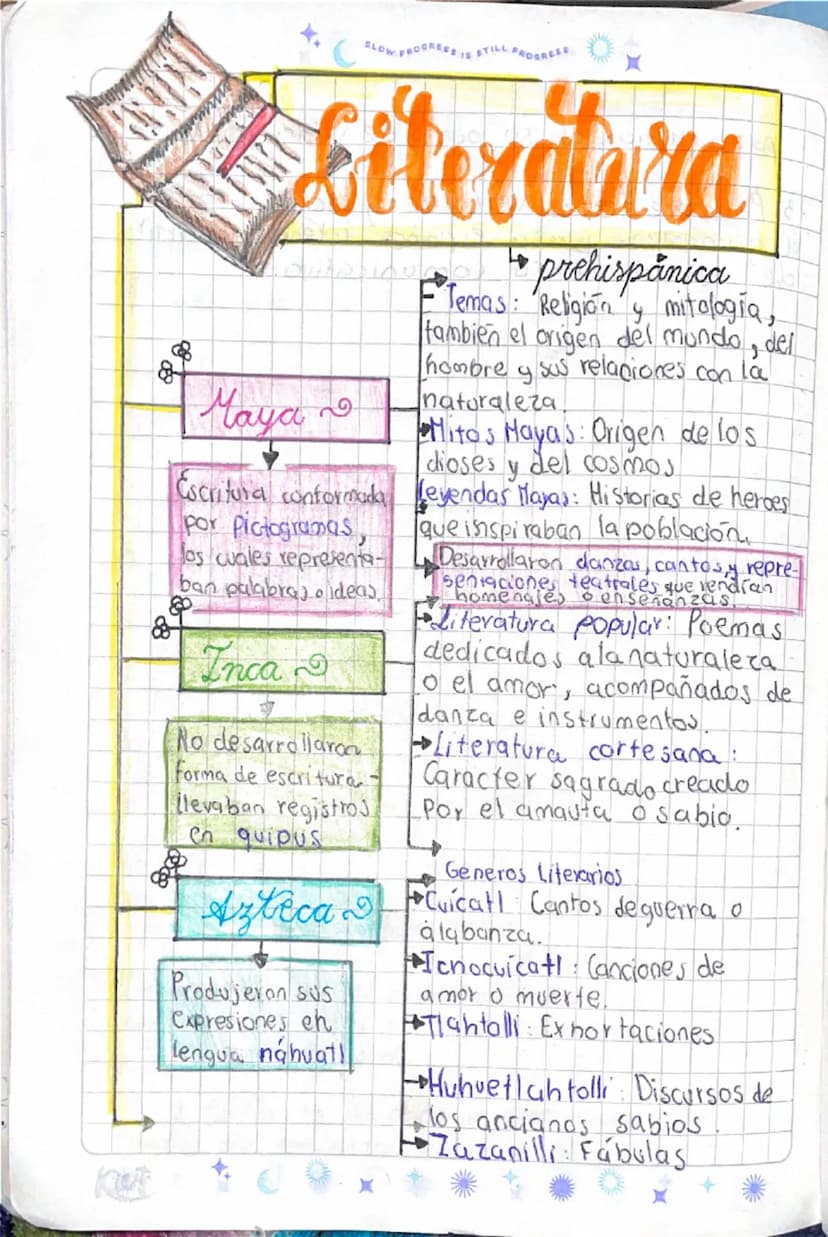 SLOW PROGRESS IS STILL PROGRESS
Literatura
prehispánica
Maya
Escritura conformada
por pictogramas,
los cuales representa-
ban palabras o ideas.
- Temas: Religión y mitología,
también el origen del mundo, del
hombre y sus relaciones con la
naturaleza.
Mitos Mayas: Origen de los
dioses y del cosmos
leyendas Mayas: Historias de heroes
que inspiraban la población.
Desarrollaron danzas, cantos, y repre-
sentaciones teatrales que rendían
homenajes o enseñanzas.
Inca
No desarrollaron
forma de escritura -
llevaban registros
en quipus
Literatura popular: Poemas
dedicados a la naturaleza
o el amor, acompañados de
danza e instrumentos.
Literatura cortesana:
Caracter sagrado creado
por el amauta o sabio.
Azteca
Produjeron sus
expresiones en
lengua náhuatl
Generos Literarios
Cuícatl: Cantos de guerra o
alabanza.
Icnocuícatl: Canciones de
amor o muerte.
Tlahtolli: Exhortaciones
Huhuetlahtolli: Discursos de
los ancianos sabios.
Zazanilli: Fábulas